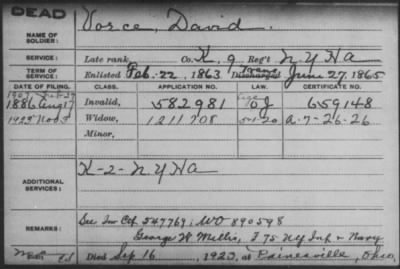 DEAD
NAME OF SOLDIER: Vorce, David.
SERVICE: Late rank, Co. K, 9 Reg't N.Y.H.A
TERM OF SERVICE: Enlisted Feb. 22, 1863, Trans Discharged June 27, 1865
DATE OF FILING. CLASS. APPLICATION NO. LAW. CERTIFICATE NO.
1886 Aug 17 Invalid, 582981 659148
Nov 3 Widow, 1211708 A-7-26-26
Minor,
ADDITIONAL SERVICES: K-2-N.Y.H.A
REMARKS: See Inv Ctf 547769; WO 890598
George W F 75 NY Inf & Navy
Died Sep 16, 1923, at Painesville, Ohio,